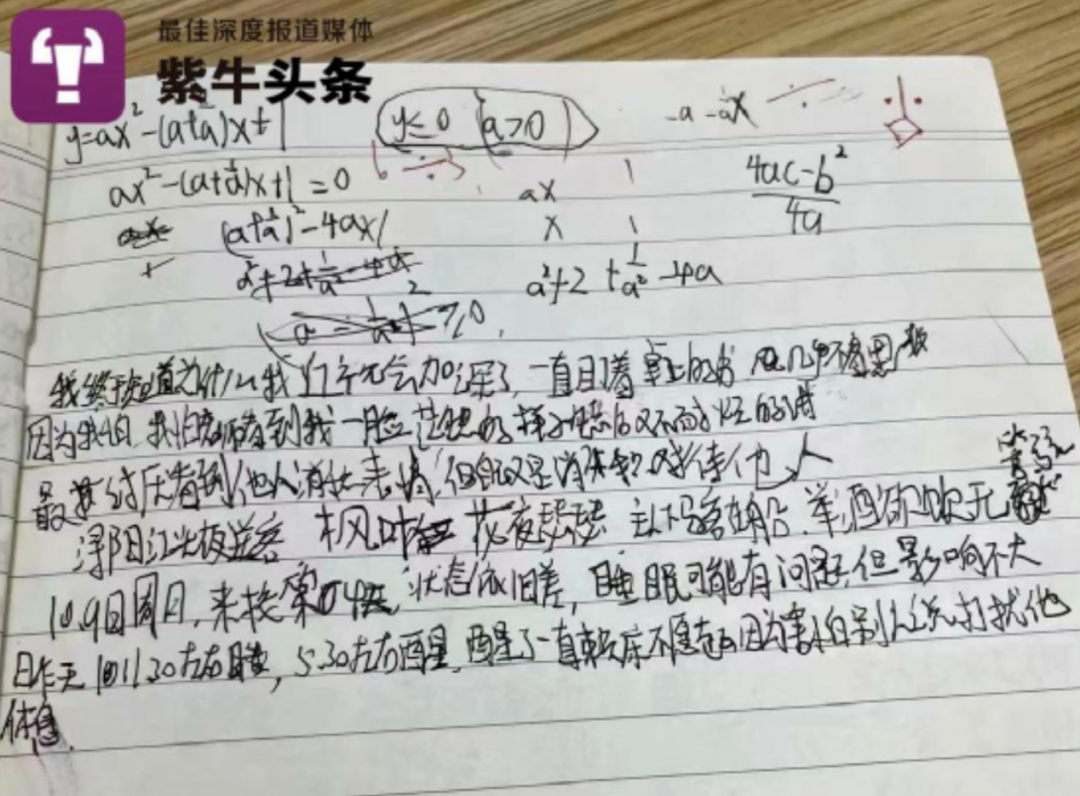 最佳深度报道媒体
紫牛头条
y=ax²-(a+1/a)x+1 y≤0 (a>0) -a -1/a x
ax²-(a+1/a)x+1=0 ax 1 (4ac-b²)/4a
(a+1/a)²-4a×1 x 1
a²+2+1/a²-4a a²+2+1/a²-4a
我终于知道为什么我 会加深了 一直盯着桌上的书 几乎不看黑板
因为我怕 我怕老师看到我一脸茫然的样子
最 讨厌看到他人消极表情,但自己又是消极 对待他人
浔阳江头夜送客 枫叶 花夜瑟瑟 主人下马客在船 举酒欲饮无管弦
10.9日周日,来校第4天,状态依旧差,睡眠可能有问题,但影响不大
昨天 11.30左右睡,5.30左右醒,醒了一直赖床不愿起因为害怕别人说打扰他
休息.